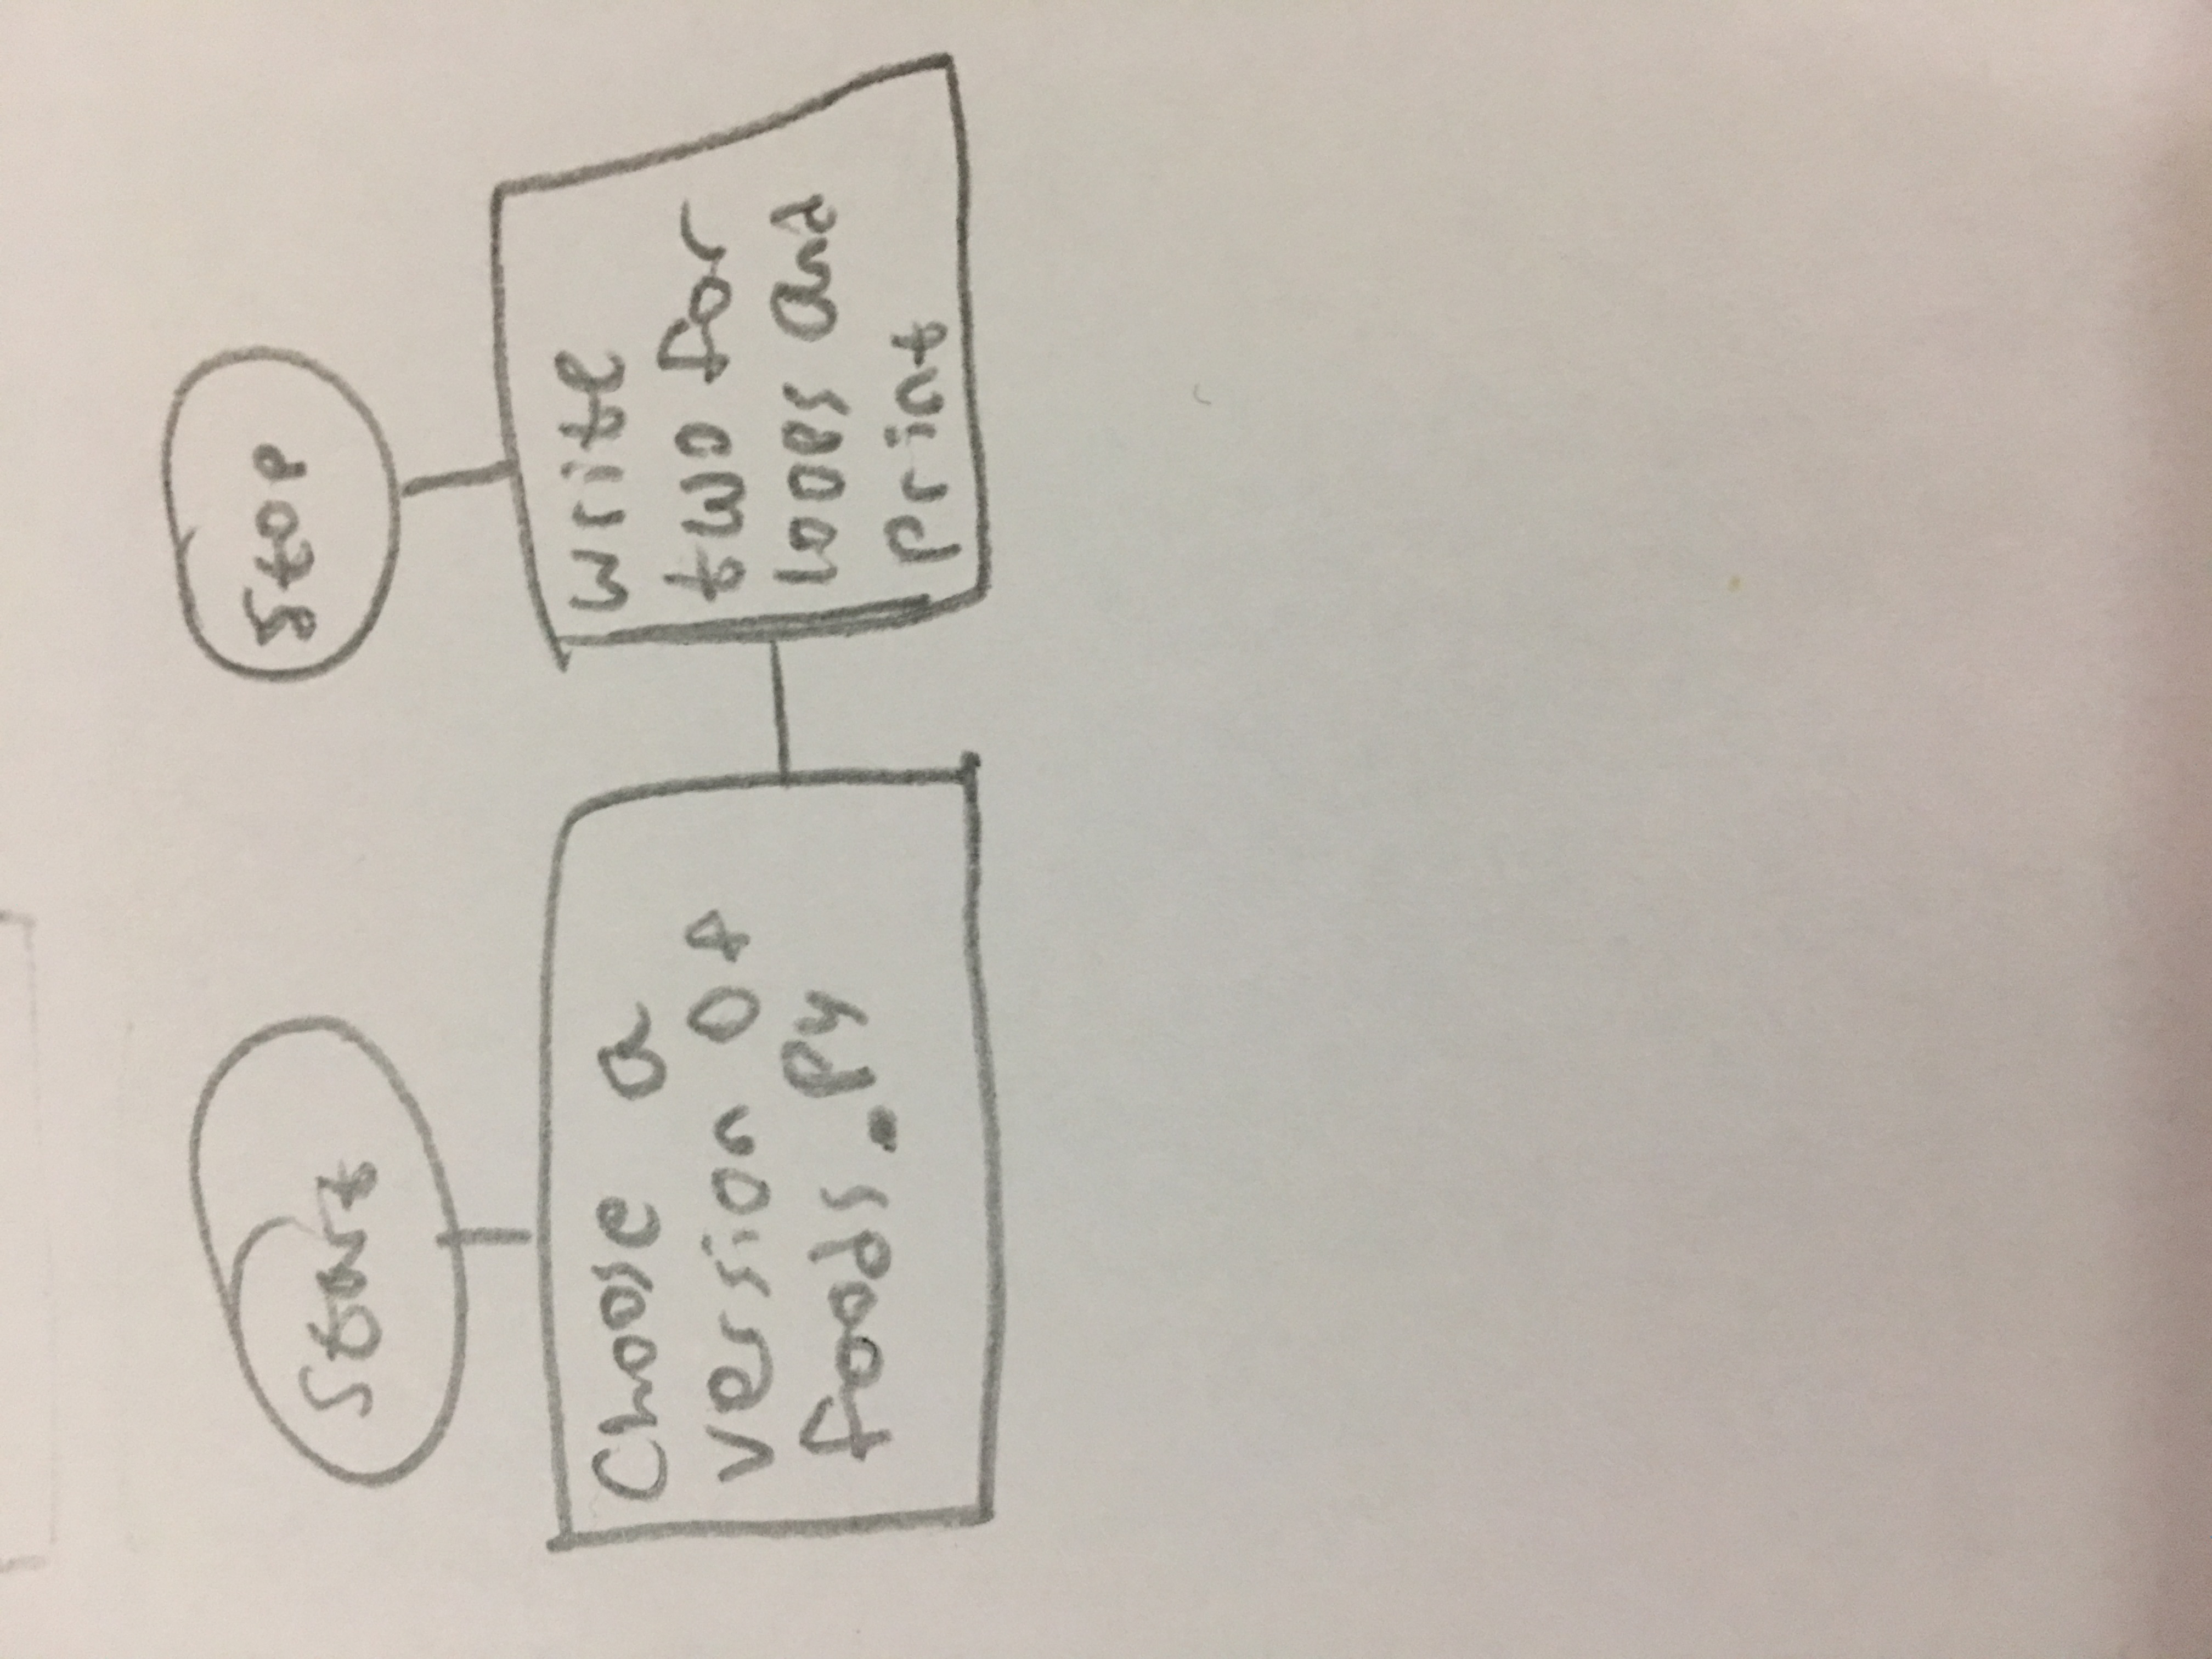 Start
Choose a
version of
foods.py
Stop
write
two for
loops and
print